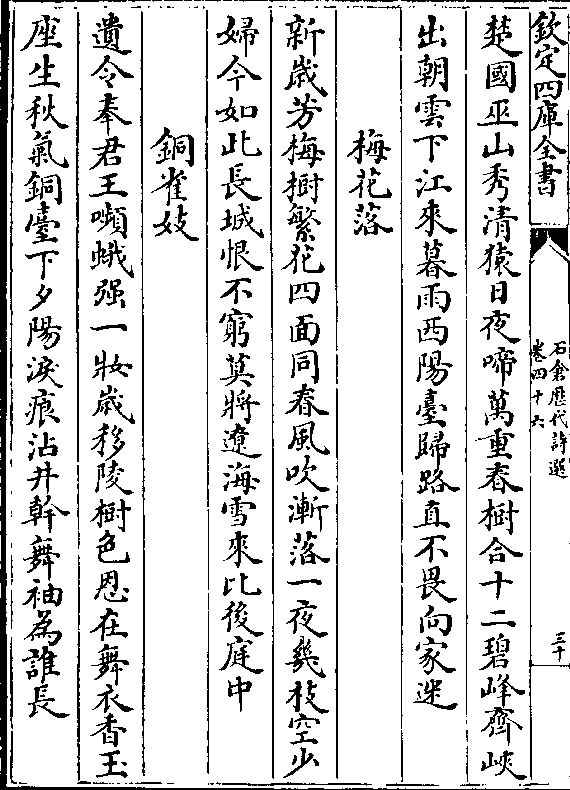 欽定四庫全書
石倉歷代詩選
卷四十六
三十
楚國巫山秀清猿日夜啼萬重春樹合十二碧峰齊峽
出朝雲下江來暮雨西陽臺歸路直不畏向家迷
梅花落
新歲芳梅樹繁花四面同春風吹漸落一夜幾枝空少
婦今如此長城恨不窮莫將遼海雪來比後庭中
銅雀妓
遺令奉君王嚬蛾强一妝歲移陵樹色恩在舞衣香玉
座生秋氣銅臺下夕陽淚痕沾井幹舞袖為誰長